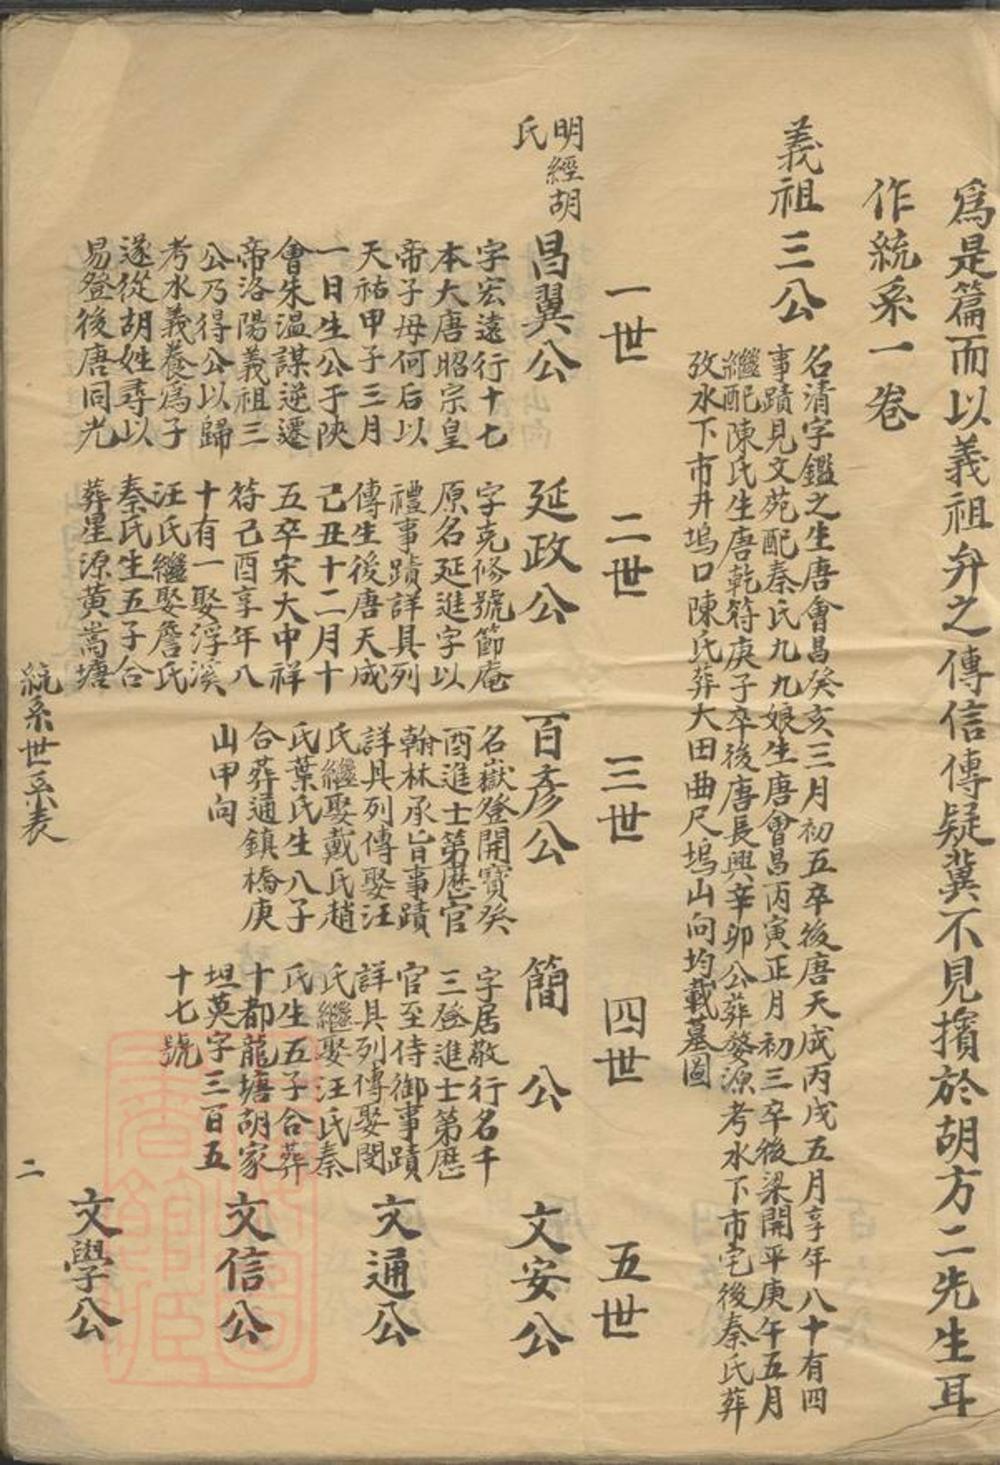 為是篇而以義祖弁之傳信傳疑冀不見擯於胡方二先生耳
作統系一卷
義祖三公
名清字鑑之生唐會昌癸亥三月初五卒後唐天成丙戌五月享年八十有四
事蹟見文苑配秦氏九九娘生唐會昌丙寅正月初三卒後梁開平庚午五月
繼配陳氏生唐乾符庚子卒後唐長興辛卯公葬婺源考水下市宅後秦氏葬
攷水下市升塢口陳氏葬大田曲尺塢山向均載墓圖
一世
二世
三世
四世
五世
明經胡
氏
昌翼公
字宏遠行十七
本大唐昭宗皇
帝子母何后以
天祐甲子三月
一日生公于陝
會朱溫謀逆遷
帝洛陽義祖三
公乃得公以歸
考水義養為子
遂從胡姓尋以
易登後唐同光
延政公
字克修號節庵
原名延進字以
禮事蹟詳具列
傳生後唐天成
己丑十二月十
五卒宋大中祥
符己酉享年八
十有一娶浮溪
汪氏繼娶詹氏
秦氏生五子合
葬星源黃嵩塘
百彥公
名嶽登開寶癸
酉進士第歷官
翰林承旨事蹟
詳具列傳娶汪
氏繼娶戴氏趙
氏葉氏生八子
合葬通鎮橋庚
山甲向
簡公
字居敬行名千
三登進士第歷
官至侍御事蹟
詳具列傳娶閔
氏繼娶汪氏秦
氏生五子合葬
十都龍塘胡家
坦英字三百五
十七號
文安公
文通公
文信公
文學公
統系世系表
二